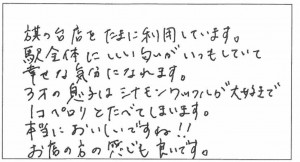 旗の台店をたまに利用しています。
駅全体にいい匂いがいつもしていて
幸せな気分になれます。
3才の息子はシナモンワッフルが大好きで
1コペロリとたべてしまいます。
本当においしいですね!!
お店の方の感じも良いです。